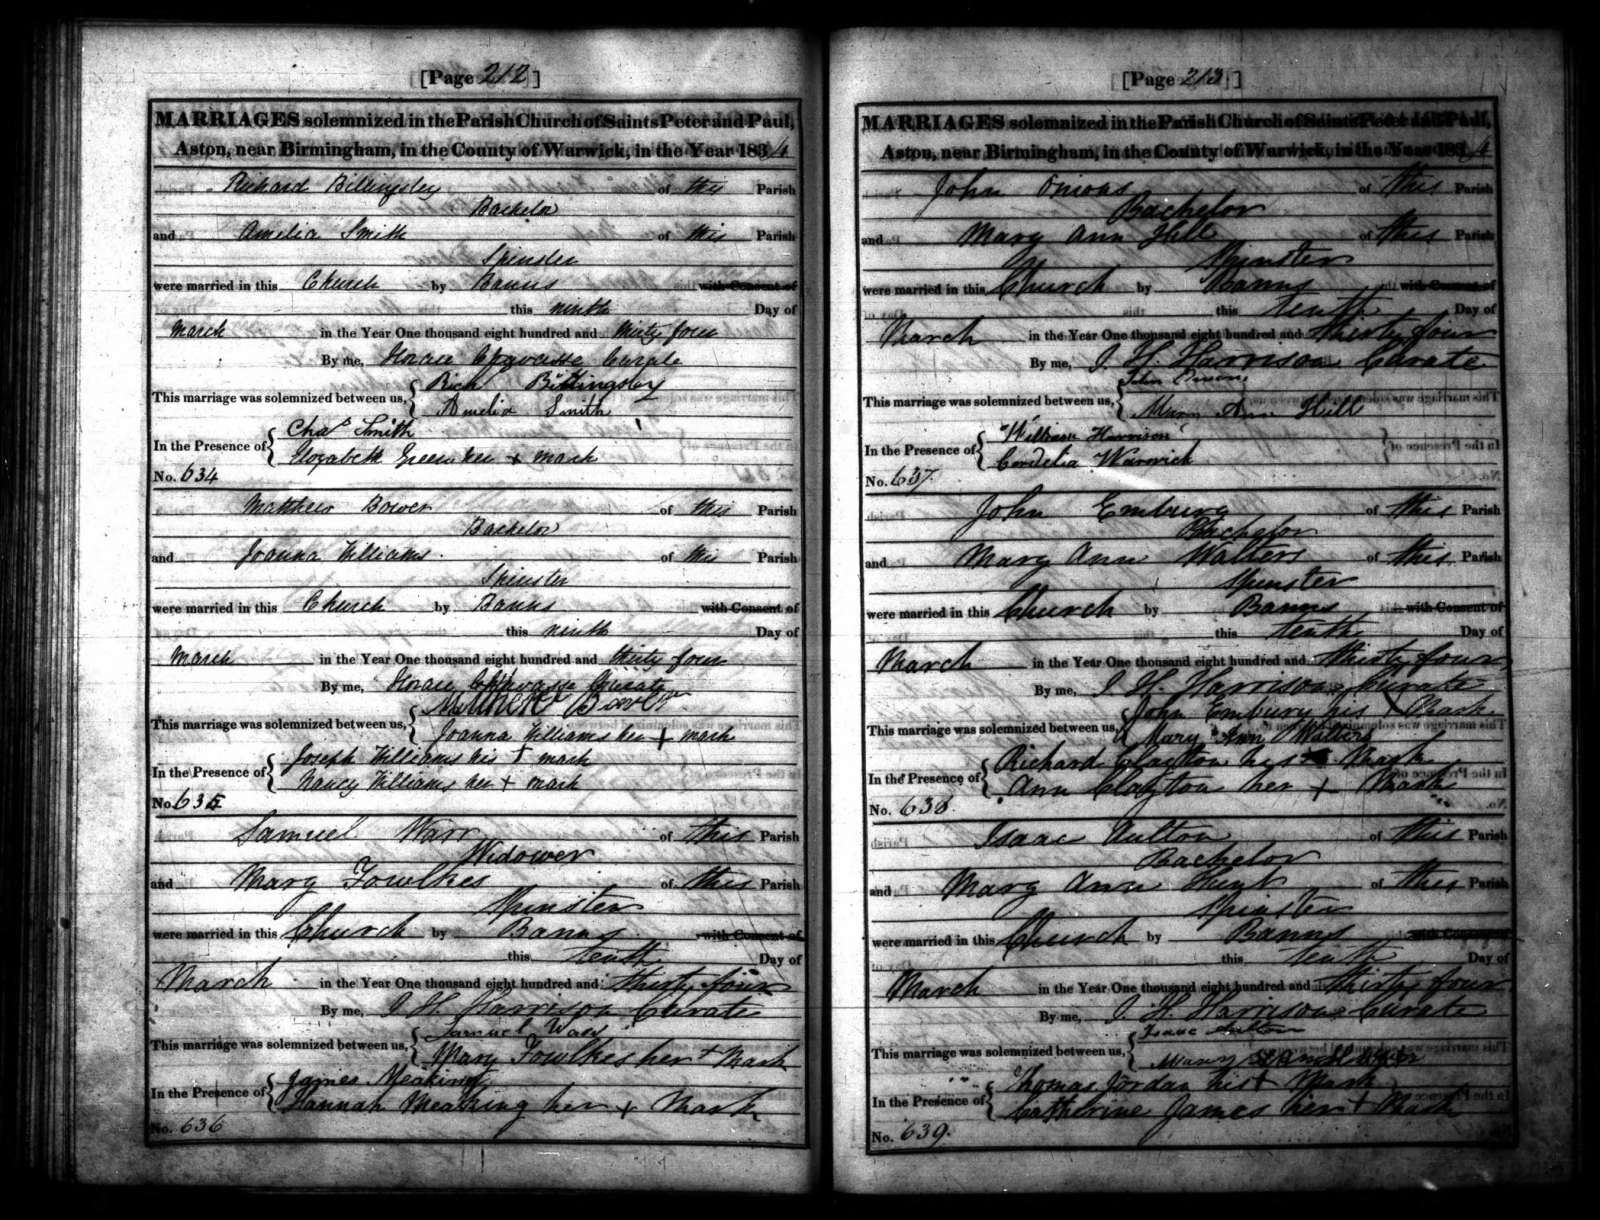 [Page 212]
MARRIAGES solemnized in the Parish Church of Saints Peter and Paul,
Aston, near Birmingham, in the County of Warwick, in the Year 1834
Richard Billingsley of this Parish
Bachelor
and Amelia Smith of this Parish
Spinster
were married in this Church by Banns with Consent of
this ninth Day of
March in the Year One thousand eight hundred and thirty four
By me, Horace Chavasse Curate
This marriage was solemnized between us, { Rich Billingsley
Amelia Smith
In the Presence of { Chas Smith
Elizabeth Green her + mark
No. 634
Matthew Bower of this Parish
Bachelor
and Joanna Williams of this Parish
Spinster
were married in this Church by Banns with Consent of
this ninth Day of
March in the Year One thousand eight hundred and thirty four
By me, Horace Chavasse Curate
This marriage was solemnized between us, { Matthew Bower
Joanna Williams her + mark
In the Presence of { Joseph Williams his + mark
Nancy Williams her + mark
No. 635
Samuel Warr of this Parish
Widower
and Mary Fowlkes of this Parish
Spinster
were married in this Church by Banns with Consent of
this tenth Day of
March in the Year One thousand eight hundred and thirty four
By me, I. H. Harrison Curate
This marriage was solemnized between us, { Samuel Warr
Mary Fowlkes her + Mark
In the Presence of { James Meaking
Hannah Meaking her + Mark
No. 636
[Page 213]
MARRIAGES solemnized in the Parish Church of Saints Peter and Paul,
Aston, near Birmingham, in the County of Warwick, in the Year 1834
John Onions of this Parish
Bachelor
and Mary Ann Hill of this Parish
Spinster
were married in this Church by Banns with Consent of
this tenth Day of
March in the Year One thousand eight hundred and thirty four
By me, I. H. Harrison Curate
This marriage was solemnized between us, { John Onions
Mary Ann Hill
In the Presence of { William Harrison
Cordelia Warwick
No. 637.
John Embury of this Parish
Bachelor
and Mary Ann Walters of this Parish
Spinster
were married in this Church by Banns with Consent of
this tenth Day of
March in the Year One thousand eight hundred and thirty four
By me, I. H. Harrison Curate
This marriage was solemnized between us, { John Embury his + Mark
Mary Ann Walters
In the Presence of { Richard Clayton his + Mark
Ann Clayton her + Mark
No. 638.
Isaac Aulton of this Parish
Bachelor
and Mary Ann Hunt of this Parish
Spinster
were married in this Church by Banns with Consent of
this tenth Day of
March in the Year One thousand eight hundred and thirty four
By me, I. H. Harrison Curate
This marriage was solemnized between us, { Isaac Aulton
Mary
In the Presence of { Thomas Jordan his + Mark
Catherine James her + Mark
No. 639.